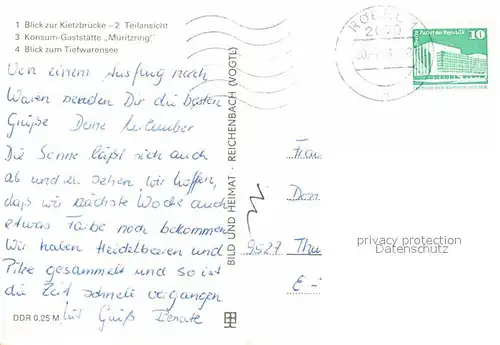 1 Blick zur Kietzbrücke – 2 Teilansicht
3 Konsum-Gaststätte „Müritzring"
4 Blick zum Tiefwarensee
Von einem Ausflug nach
Waren senden Dir die besten
Grüße Deine
Die Sonne läßt sich auch
ab und zu sehen, wir hoffen,
daß wir nächste Woche auch
etwas Farbe noch bekommen.
Wir haben Heidelbeeren und
Pilze gesammelt und so ist
die Zeit schnell vergangen
Gruß Renate
DDR 0,25 M
BILD UND HEIMAT · REICHENBACH (VOGTL)
2070
Palast der Republik
10
Frau
9527 Thu
E-
privacy protection
Datenschutz